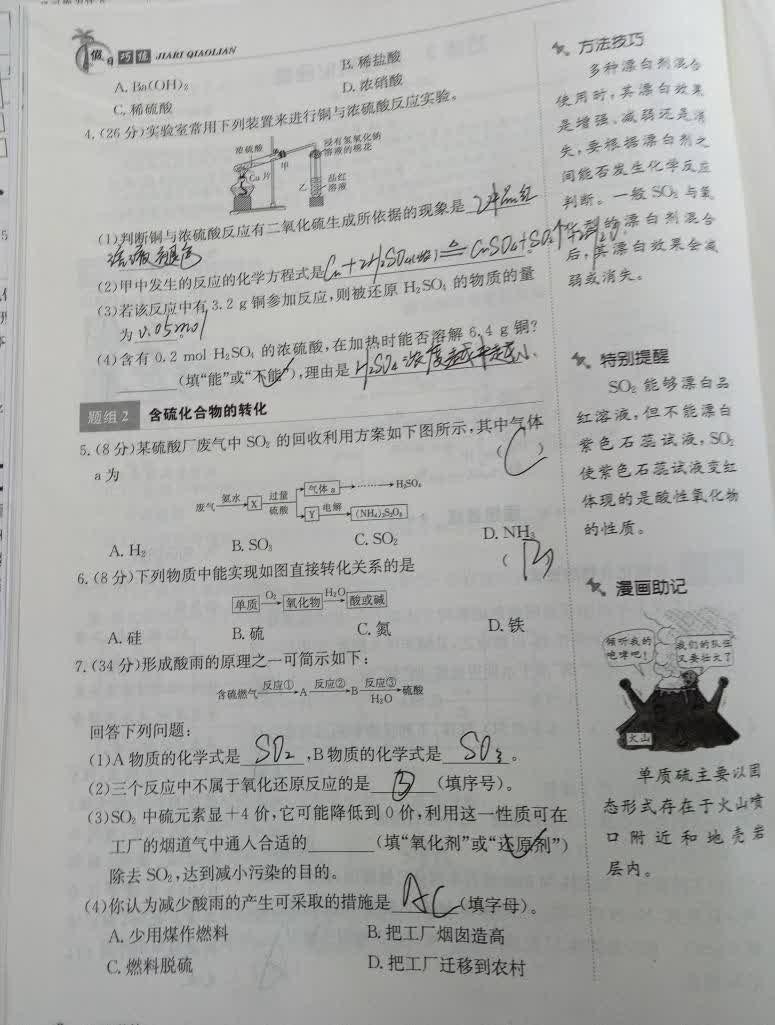 假日 巧练 JIARI QIAOLIAN
A. Ba(OH)₂ B. 稀盐酸
C. 稀硫酸 D. 浓硝酸
4. (26 分)实验室常用下列装置来进行铜与浓硫酸反应实验。
浓硫酸
浸有氢氧化钠
溶液的棉花
甲
Cu 片
乙
品红
溶液
(1)判断铜与浓硫酸反应有二氧化硫生成所依据的现象是 乙中品红
溶液褪色
(2)甲中发生的反应的化学方程式是 Cu+2H₂SO₄(浓) ≜ CuSO₄+SO₂↑+2H₂O
(3)若该反应中有 3.2 g 铜参加反应,则被还原 H₂SO₄ 的物质的量
为 0.05mol
(4)含有 0.2 mol H₂SO₄ 的浓硫酸,在加热时能否溶解 6.4 g 铜?
(填“能”或“不能”),理由是 H₂SO₄浓度越来越小.
题组 2 含硫化合物的转化
5. (8 分)某硫酸厂废气中 SO₂ 的回收利用方案如下图所示,其中气体
a 为 ( C )
废气 氨水 X 过量 硫酸 气体 a ⋯⋯ H₂SO₄
Y 电解 (NH₄)₂S₂O₈
A. H₂ B. SO₃ C. SO₂ D. NH₃
6. (8 分)下列物质中能实现如图直接转化关系的是 ( B
单质 O₂ 氧化物 H₂O 酸或碱
A. 硅 B. 硫 C. 氮 D. 铁
7. (34 分)形成酸雨的原理之一可简示如下:
含硫燃气 反应① A 反应② B 反应③ H₂O 硫酸
回答下列问题:
(1)A 物质的化学式是 SO₂ ,B 物质的化学式是 SO₃ 。
(2)三个反应中不属于氧化还原反应的是 ③ (填序号)。
(3)SO₂ 中硫元素显+4 价,它可能降低到 0 价,利用这一性质可在
工厂的烟道气中通入合适的 (填“氧化剂”或“还原剂”)
除去 SO₂,达到减小污染的目的。
(4)你认为减少酸雨的产生可采取的措施是 AC (填字母)。
A. 少用煤作燃料 B. 把工厂烟囱造高
C. 燃料脱硫 D. 把工厂迁移到农村
方法技巧
多种漂白剂混合
使用时,其漂白效果
是增强、减弱还是消
失,要根据漂白剂之
间能否发生化学反应
判断。一般 SO₂ 与氧
化剂的漂白剂混合
后,其漂白效果会减
弱或消失。
特别提醒
SO₂ 能够漂白品
红溶液,但不能漂白
紫色石蕊试液,SO₂
使紫色石蕊试液变红
体现的是酸性氧化物
的性质。
漫画助记
倾听我的
咆哮吧!
我们的队伍
又要壮大了
火山
单质硫主要以固
态形式存在于火山喷
口附近和地壳岩
层内。